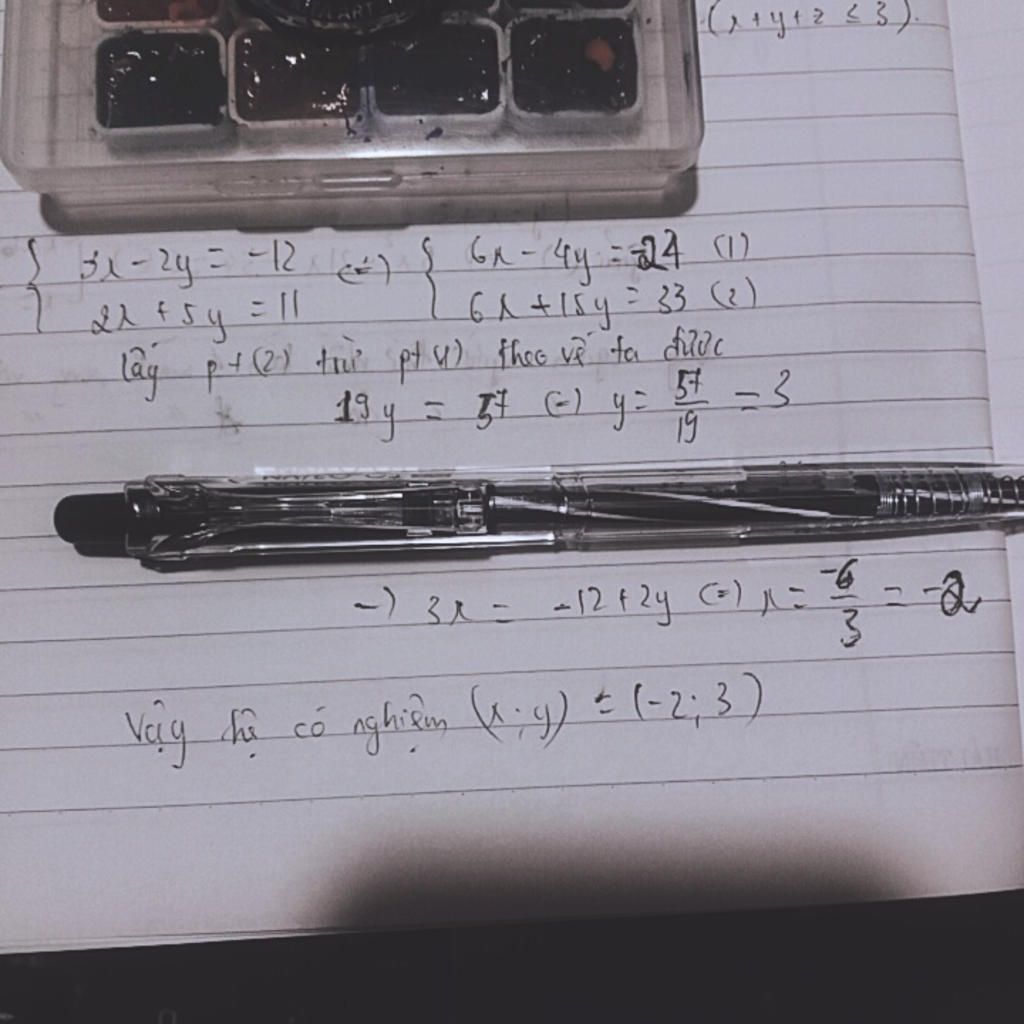 (x+y+z ≤ 3).
{ 3x - 2y = -12 (=) { 6x - 4y = -24 (1)
2x + 5y = 11 6x + 15y = 33 (2)
lấy pt(2) trừ pt(1) theo vế ta được
19y = 57 (=) y = 57/19 = 3
-) 3x = -12 + 2y (=) x = -6/3 = -2
Vậy hệ có nghiệm (x; y) = (-2; 3)